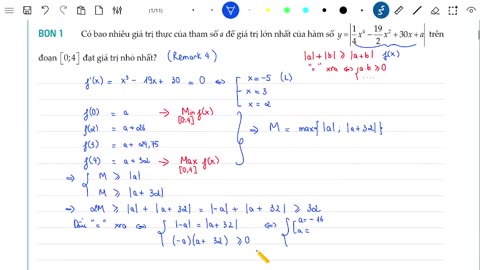 (1/11)
BON 1 Có bao nhiêu giá trị thực của tham số a để giá trị lớn nhất của hàm số y = |1/4 x⁴ − 19/2 x² + 30x + a| trên
đoạn [0;4] đạt giá trị nhỏ nhất? (Remark 4)
f(x)
|a| + |b| ≥ |a+b|
"=" xra ⇔ ab ≥ 0
f'(x) = x³ − 19x + 30 = 0 ⇔ [ x = −5 (L)
x = 3
x = 2
f(0) = a → Min f(x) [0;4]
f(2) = a + 26
f(3) = a + 24,75
f(4) = a + 32 → Max f(x) [0,4]
⇒ M = max{|a| ; |a+32|}
⇒ { M ≥ |a|
M ≥ |a + 32|
⇒ 2M ≥ |a| + |a + 32| = |−a| + |a + 32| ≥ 32
Dấu "=" xra ⇔ { |−a| = |a + 32|
(−a)(a + 32) ≥ 0
⇔ { [ a = −16
a =